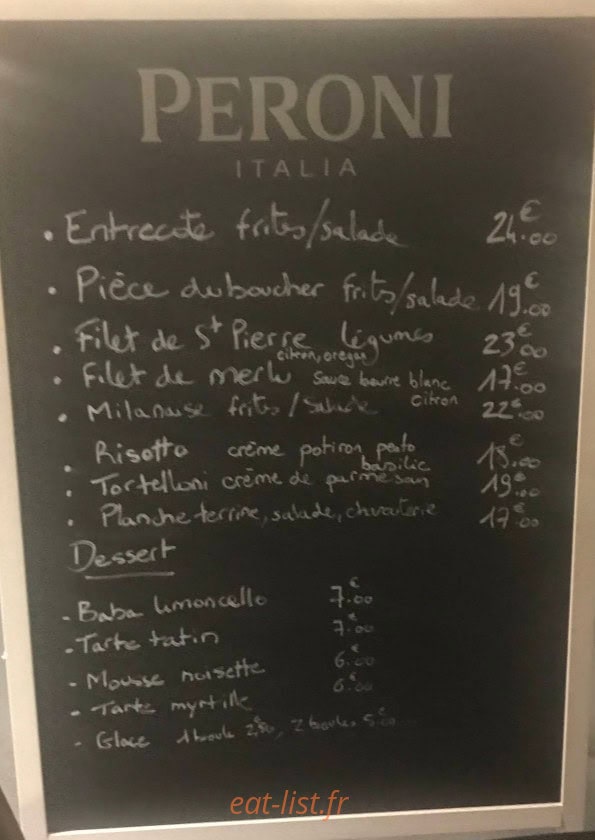 PERONI
ITALIA
• Entrecote frites/salade 24.00€
• Pièce du boucher frits/salade 19.00€
• Filet de St Pierre légumes 23.00€
citron, oregan
• Filet de merlu sauce beurre blanc 17.00€
citron
• Milanaise frites/salade 22.00€
• Risotto crème potiron pesto 18.00€
basilic
• Tortelloni crème de parmesan 19.00€
• Planche terrine, salade, charcuterie 17.00€
Dessert
- Baba limoncello 7.00€
- Tarte tatin 7.00€
- Mousse noisette 6.00€
- Tarte myrtille 6.00€
- Glace 1 boule 2,50€, 2 boules 5.00€
eat-list.fr